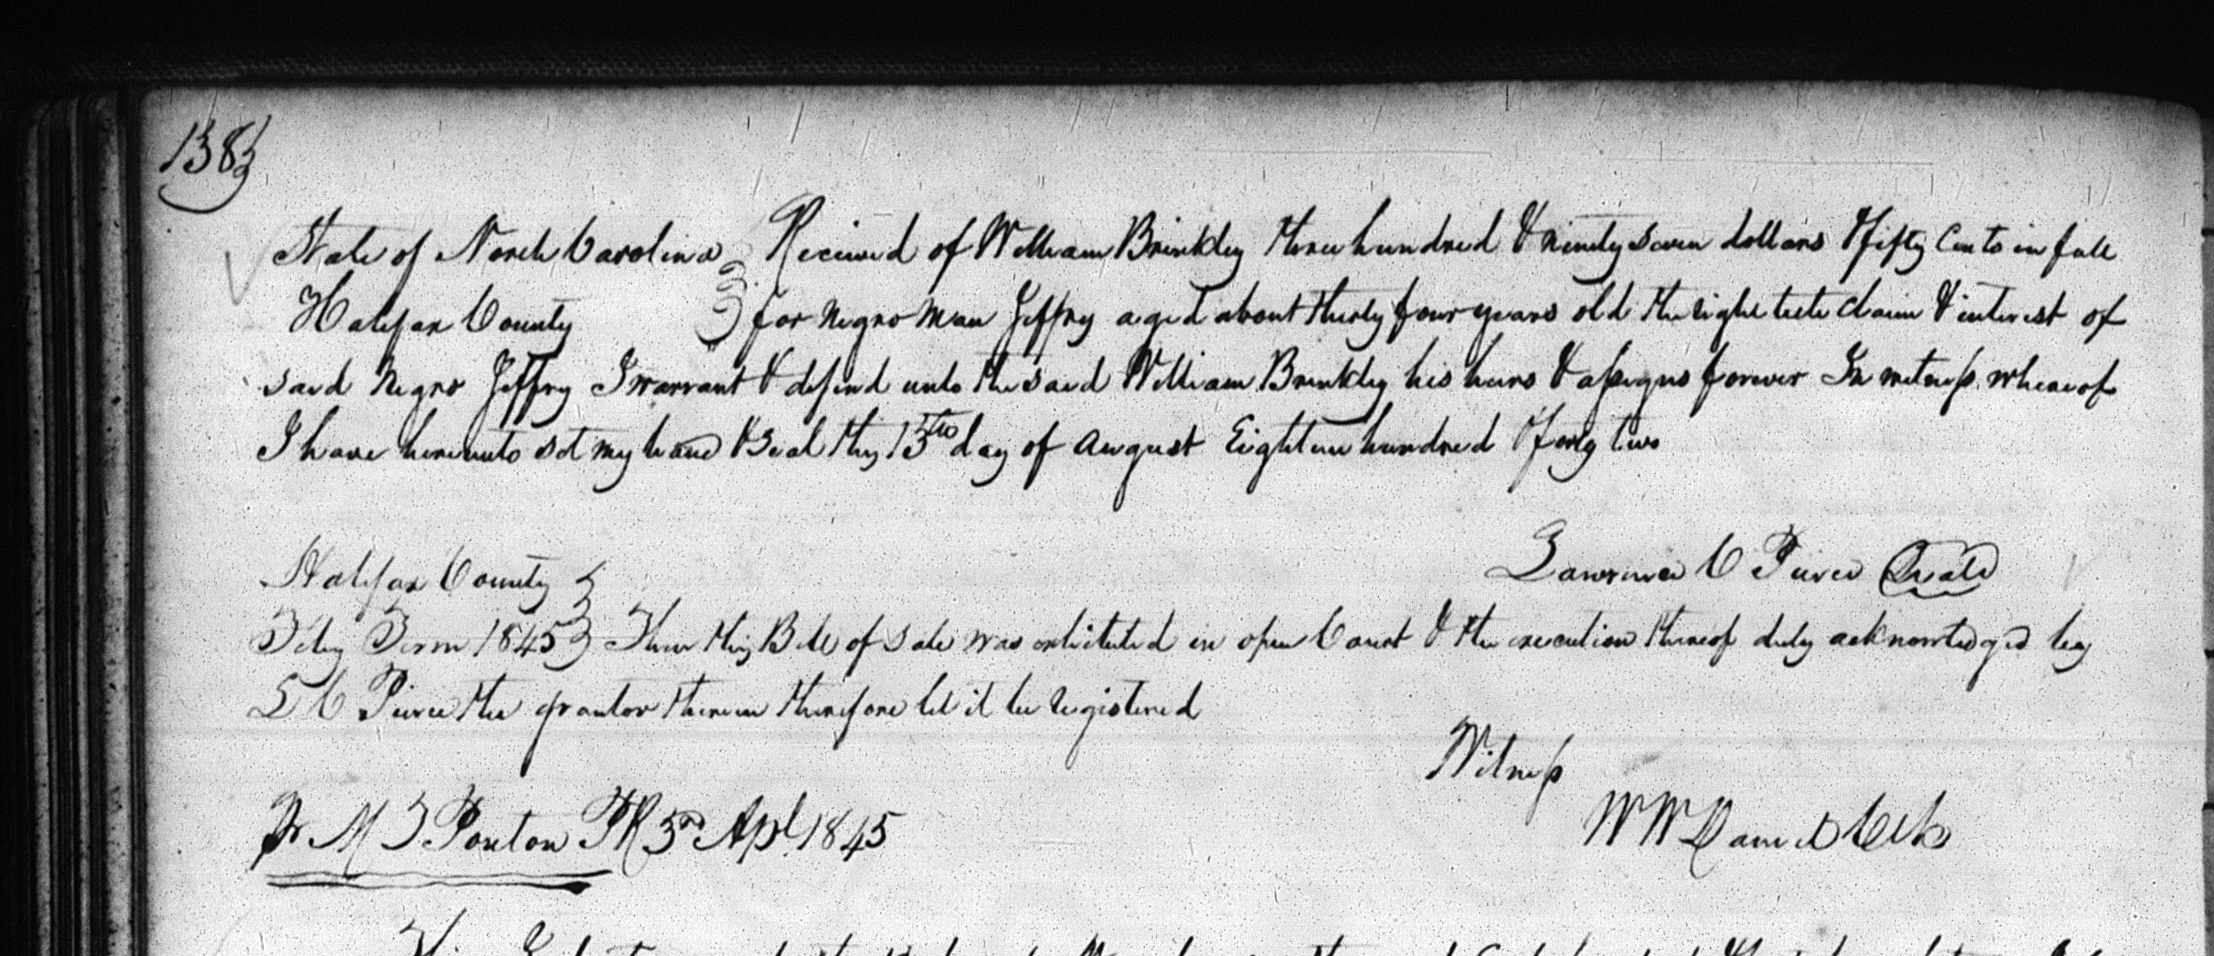 138
State of North Carolina } Received of William Brinkley three hundred & ninety seven dollars & fifty Cents in full
Halifax County } for negro man Jeffry aged about thirty four years old the right title claim & interest of
said Negro Jeffry I warrant & defend unto the said William Brinkley his heirs & assigns forever In witness whereof
I have hereunto set my hand & Seal this 15th day of August Eighteen hundred & forty two
Lawrence C Pierce Seal
Halifax County }
Feby Term 1845 } Then this Bill of Sale was exhibited in open Court & the execution thereof duly acknowledged by
L C Pierce the grantor therein therefore let it be registered
Witness
W W Daniel Clk
M T Ponton PR 3d Apl 1845